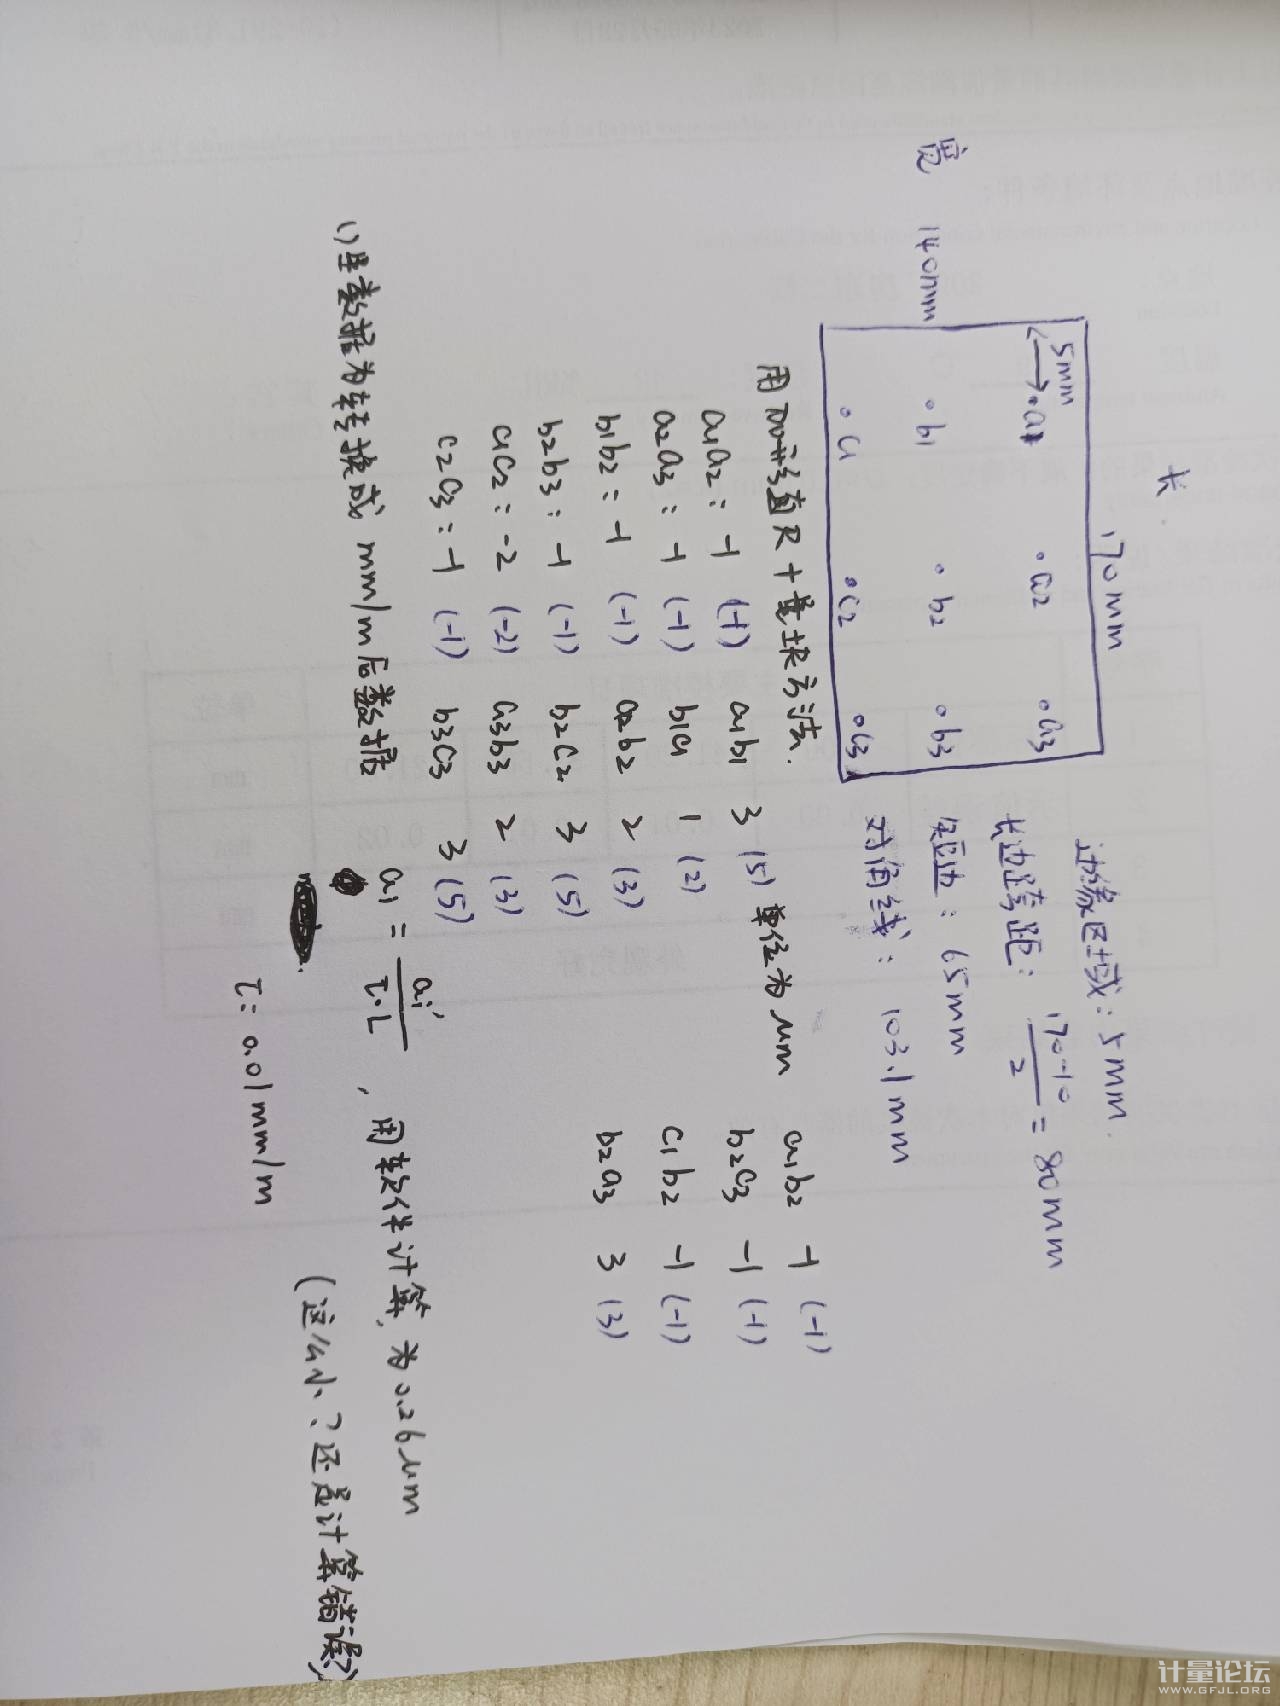 长
170mm
宽 140mm
5mm
a1 a2 a3
b1 b2 b3
c1 c2 c3
边缘区域：5mm.
长边跨距：170-10/2 = 80mm
短边：65mm
对角线：103.1mm
用刀口直尺+量块方法.
a1a2：-1 (-1) a1b1 3 (5) 单位为μm a1b2 -1 (-1)
a2a3：-1 (-1) b1c1 1 (2) b2c3 -1 (-1)
b1b2：-1 (-1) a2b2 2 (3) c1b2 -1 (-1)
b2b3：-1 (-1) b2c2 3 (5) b2a3 3 (3)
c1c2：-2 (-2) a3b3 2 (3)
c2c3：-1 (-1) b3c3 3 (5)
a1 = ai'/τ·L ，用软件计算，为0.26μm
()里数据为转换成mm/m后数据
(这么小？还是计算错误？)
τ=0.01mm/m
计量论坛
WWW.GFJL.ORG